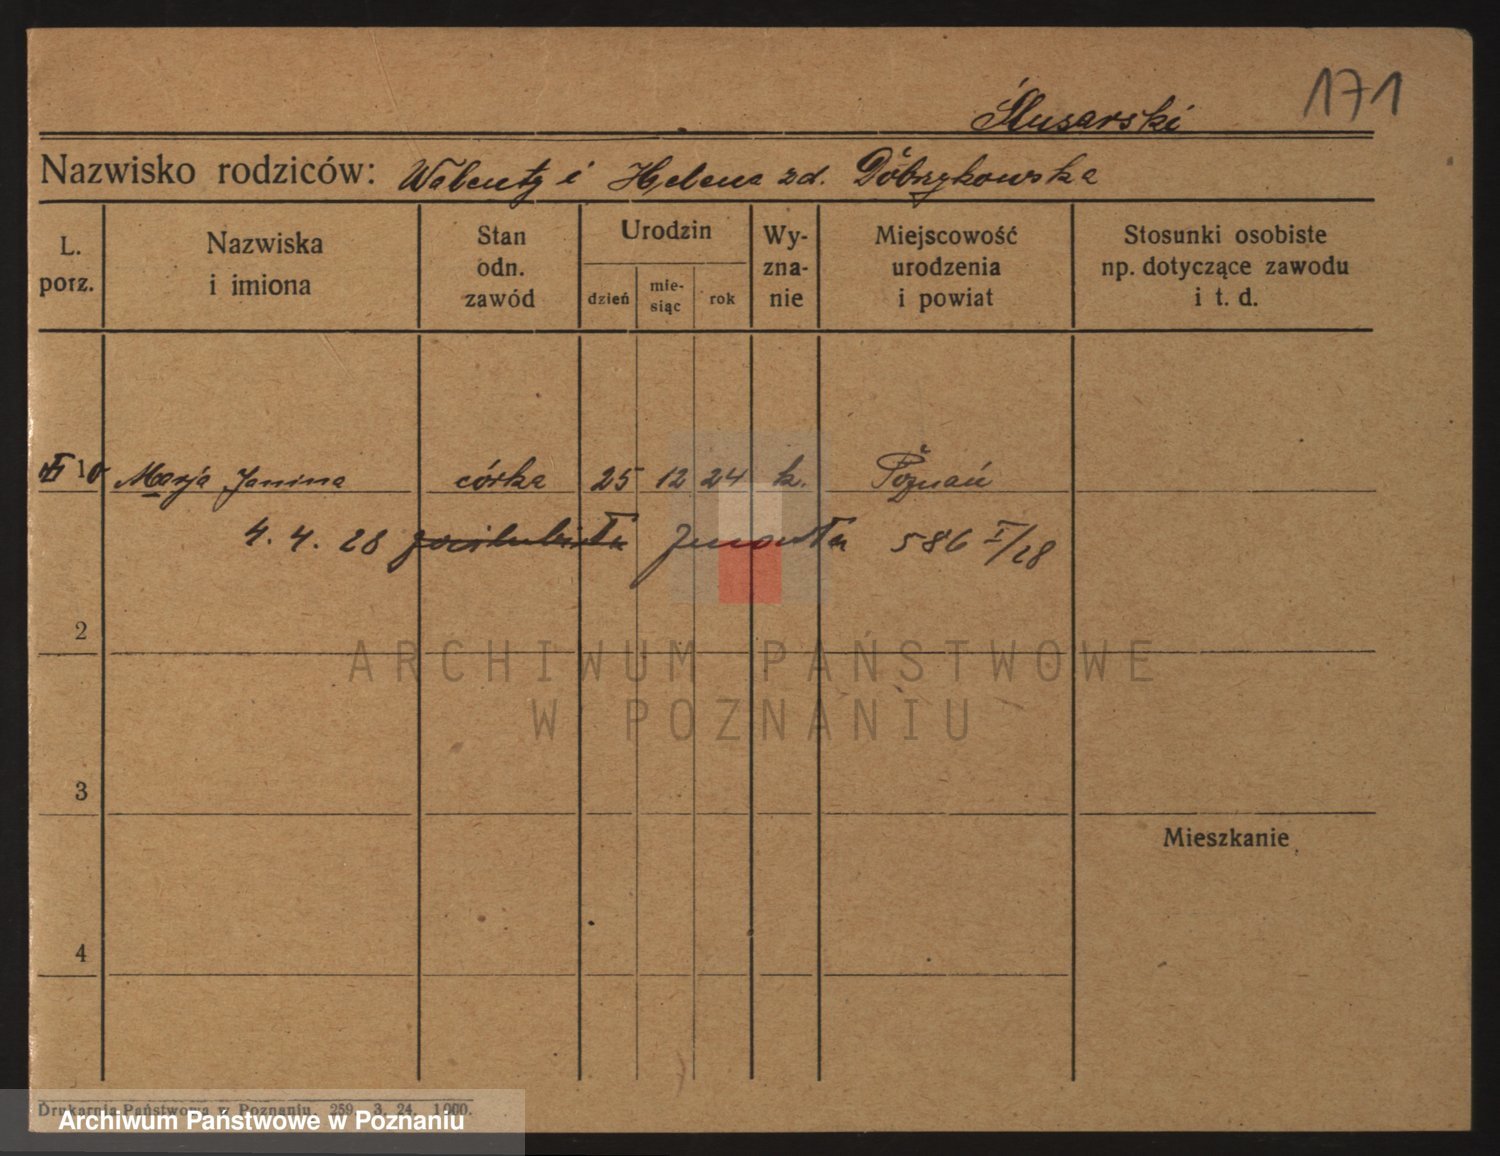 171
Ślusarski
Nazwisko rodziców: Walenty i Helena zd. Dobrzykowska
L. porz.
Nazwiska i imiona
Stan odn. zawód
Urodzin
dzień
mie-siąc
rok
Wy-zna-nie
Miejscowość urodzenia i powiat
Stosunki osobiste np. dotyczące zawodu i t. d.
10 Marja Janina córka 25 12 24 k. Poznań
4. 4. 28 zmarła 586 I/28
2
3
Mieszkanie
4
ARCHIWUM PAŃSTWOWE
W POZNANIU
Drukarnia Państwowa w Poznaniu. 259. 3. 24. 1000.
Archiwum Państwowe w Poznaniu